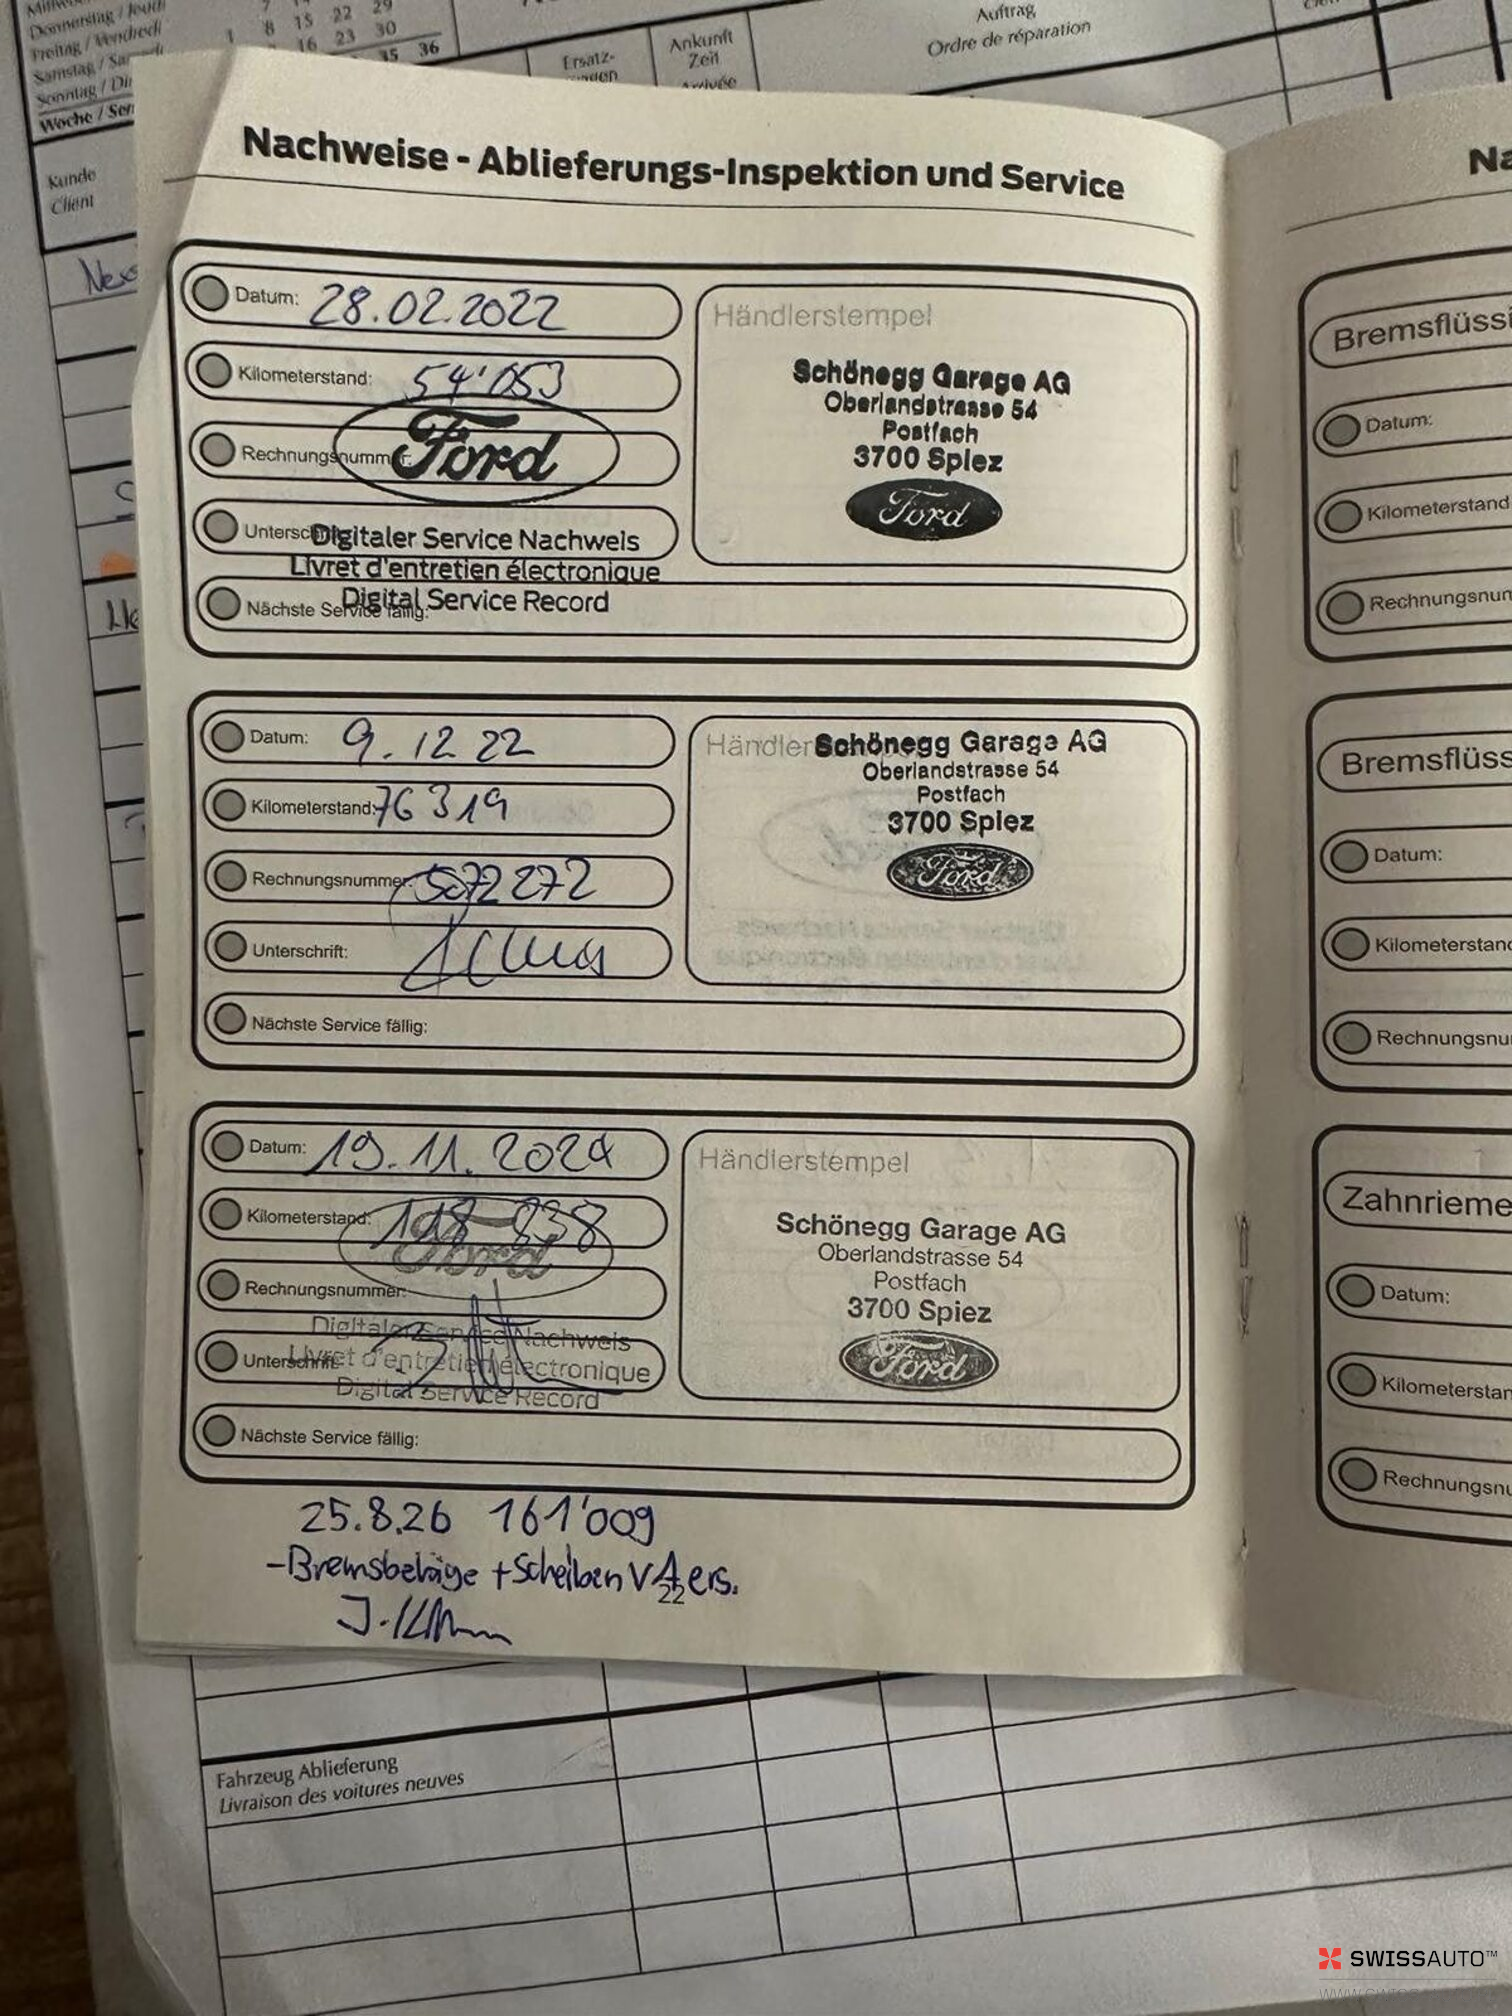 Donnerstag / Jeudi
Freitag / Vendredi 1 8 15 22 29
16 23 30
35 36
Woche / Sem
Ersatz-
Ankunft
Zeit
Arrivée
Auftrag
Ordre de réparation
Kunde
Client
Nachweise - Ablieferungs-Inspektion und Service
Datum: 28.02.2022
Kilometerstand: 54'053
Rechnungsnummer:
Ford
Unterschrift:
Digitaler Service Nachweis
Livret d'entretien électronique
Digital Service Record
Nächste Service fällig:
Händlerstempel
Schönegg Garage AG
Oberlandstrasse 54
Postfach
3700 Spiez
Ford
Datum: 9.12 22
Kilometerstand: 76 319
Rechnungsnummer: 5072272
Unterschrift:
Nächste Service fällig:
Händler
Schönegg Garage AG
Oberlandstrasse 54
Postfach
3700 Spiez
Ford
Datum: 19.11.2024
Kilometerstand: 118 838
Ford
Rechnungsnummer:
Digitaler Service Nachweis
Unterschrift:
Livret d'entretien électronique
Digital Service Record
Nächste Service fällig:
Händlerstempel
Schönegg Garage AG
Oberlandstrasse 54
Postfach
3700 Spiez
Ford
25.8.26 161'009
-Bremsbeläge + Scheiben VA ers.
22
Na
Bremsflüssi
Datum:
Kilometerstand
Rechnungsnum
Bremsflüss
Datum:
Kilometerstand
Rechnungsnu
Zahnrieme
Datum:
Kilometerstan
Rechnungsnu
Fahrzeug Ablieferung
Livraison des voitures neuves
SWISSAUTO™